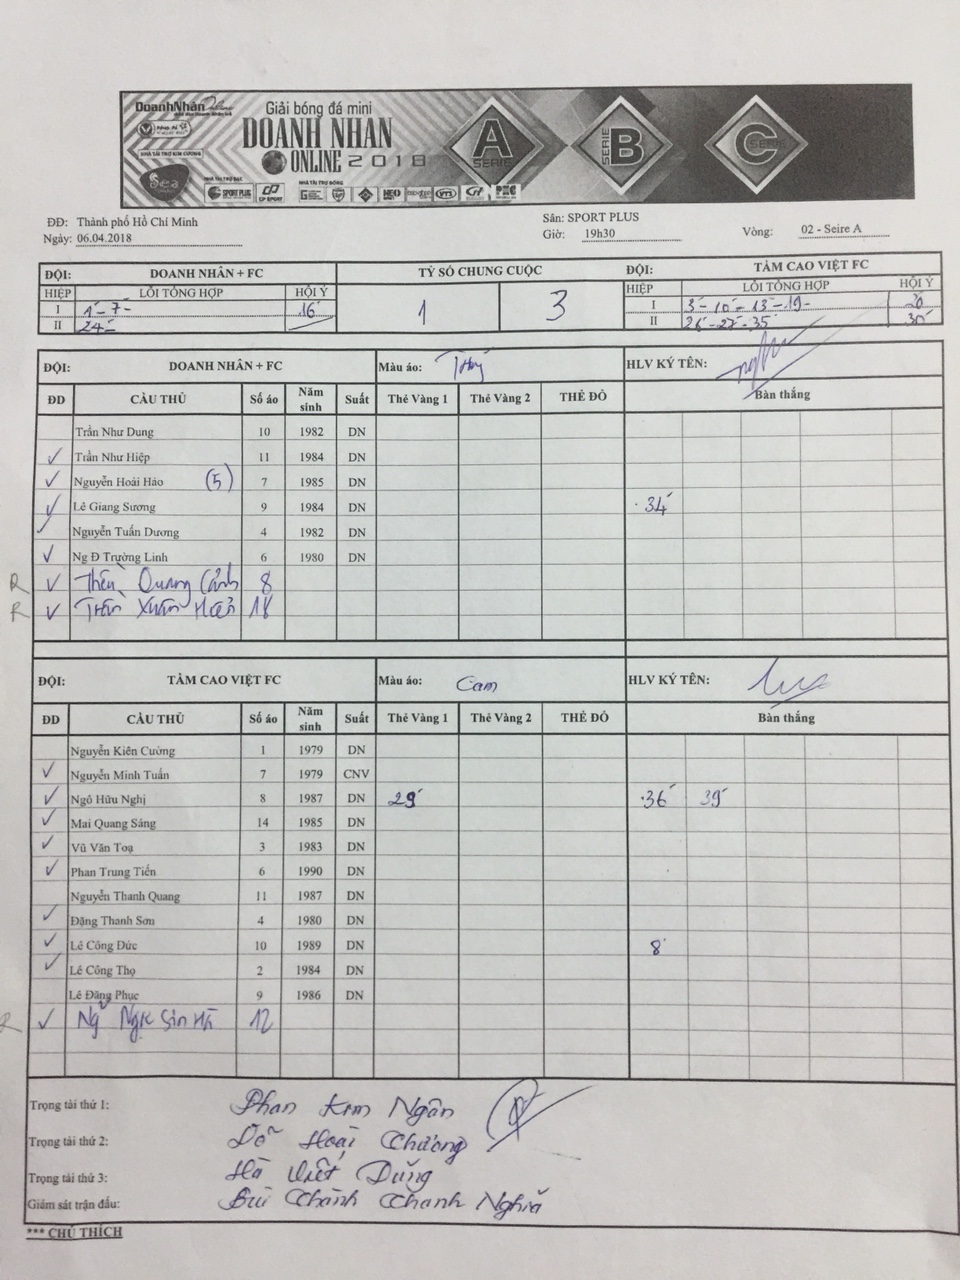 DoanhNhân Online
Giải bóng đá mini
DOANH NHAN
ONLINE 2018
NHÀ TÀI TRỢ KIM CƯƠNG
Sea
NHÀ TÀI TRỢ BẠC
NHÀ TÀI TRỢ ĐỒNG
SPORT PLUS
CP SPORT
NEO
A SERIE
SERIE B
C SERIE
ĐĐ: Thành phố Hồ Chí Minh Sân: SPORT PLUS
Ngày: 06.04.2018 Giờ: 19h30 Vòng: 02 - Seire A
ĐỘI: DOANH NHÂN + FC TỶ SỐ CHUNG CUỘC ĐỘI: TẦM CAO VIỆT FC
HIỆP LỖI TỔNG HỢP HỘI Ý 1 3 HIỆP LỖI TỔNG HỢP HỘI Ý
I 1'-7'- 16' I 3'-10'-13'-19'- 20'
II 24'- II 26'-27'-35' 30'
ĐỘI: DOANH NHÂN + FC Màu áo: HLV KÝ TÊN:
ĐD CẦU THỦ Số áo Năm sinh Suất Thẻ Vàng 1 Thẻ Vàng 2 THẺ ĐỎ Bàn thắng
Trần Như Dung 10 1982 DN
✓ Trần Như Hiệp 11 1984 DN
✓ Nguyễn Hoài Hảo (5) 7 1985 DN
✓ Lê Giang Sương 9 1984 DN 34'
✓ Nguyễn Tuấn Dương 4 1982 DN
✓ Ng Đ Trường Linh 6 1980 DN
R ✓ Quang Cảnh 8
R ✓ Trần Xuân 18
ĐỘI: TẦM CAO VIỆT FC Màu áo: Cam HLV KÝ TÊN:
ĐD CẦU THỦ Số áo Năm sinh Suất Thẻ Vàng 1 Thẻ Vàng 2 THẺ ĐỎ Bàn thắng
Nguyễn Kiên Cường 1 1979 DN
✓ Nguyễn Minh Tuấn 7 1979 CNV
✓ Ngô Hữu Nghị 8 1987 DN 29' 36' 39'
✓ Mai Quang Sáng 14 1985 DN
✓ Vũ Văn Toạ 3 1983 DN
✓ Phan Trung Tiến 6 1990 DN
Nguyễn Thanh Quang 11 1987 DN
✓ Đặng Thanh Sơn 4 1980 DN
✓ Lê Công Đức 10 1989 DN 8'
✓ Lê Công Thọ 2 1984 DN
Lê Đăng Phục 9 1986 DN
R ✓ Sơn Hà 12
Trọng tài thứ 1: Phan Kim Ngân
Trọng tài thứ 2: Đỗ Hoài Chương
Trọng tài thứ 3: Hà Việt Dũng
Giám sát trận đấu: Bùi Thành Chanh Nghĩa
*** CHÚ THÍCH